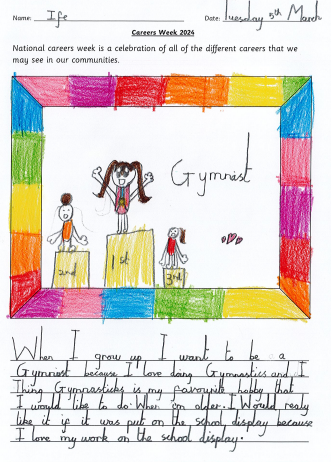 Name: Ife Date: Tuesday 5th March
Careers Week 2024
National careers week is a celebration of all of the different careers that we
may see in our communities.
Gymnist
2nd
1st
3rd
When I grow up I want to be a
Gymnist because I love doing Gymnastics and I
Thing Gymnasticks is my favourite hobby that
I would like to do When I'm older. I Would realy
like it if it was put on the school display because
I love my work on the school display.